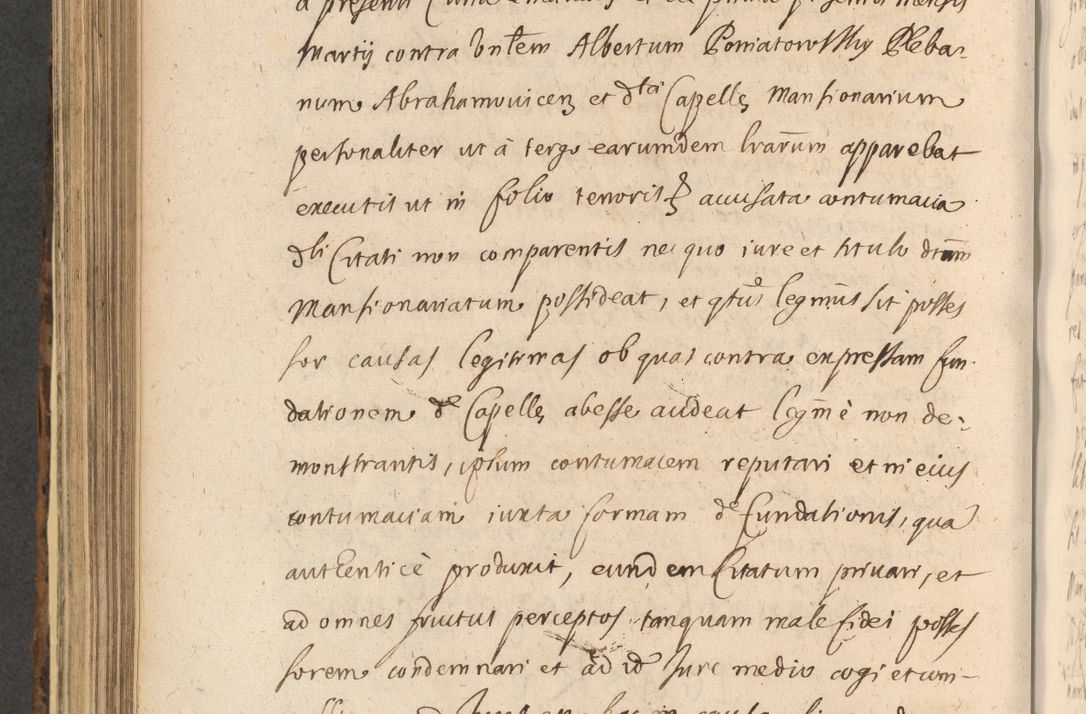 a presenti
Martij contra Vntem Albertum Poniatowskij Pleba-
num Abrahamovicen et dtæ Capellæ Mansionarium
personaliter ut à tergo earumdem lrarum apparebat
executis ut in folio tenoris accusata contumacia
dti Citati non comparentis nec quo iure et titulo dtum
Mansionariatum possideat, et legmus sit posses
sor causas legitimas ob quas contra expressam fun-
dationem dæ Capellæ abesse audeat legmè non de-
monstrantis, ipsum contumacem reputari et in eius
contumaciam iuxta formam dæ Fundationis, quā
autenticè produxit, eundem Citatum privari, et
ad omnes fructus perceptos tanquam male fidei posses
sorem condemnari et ad id Jure medio cogi et com-